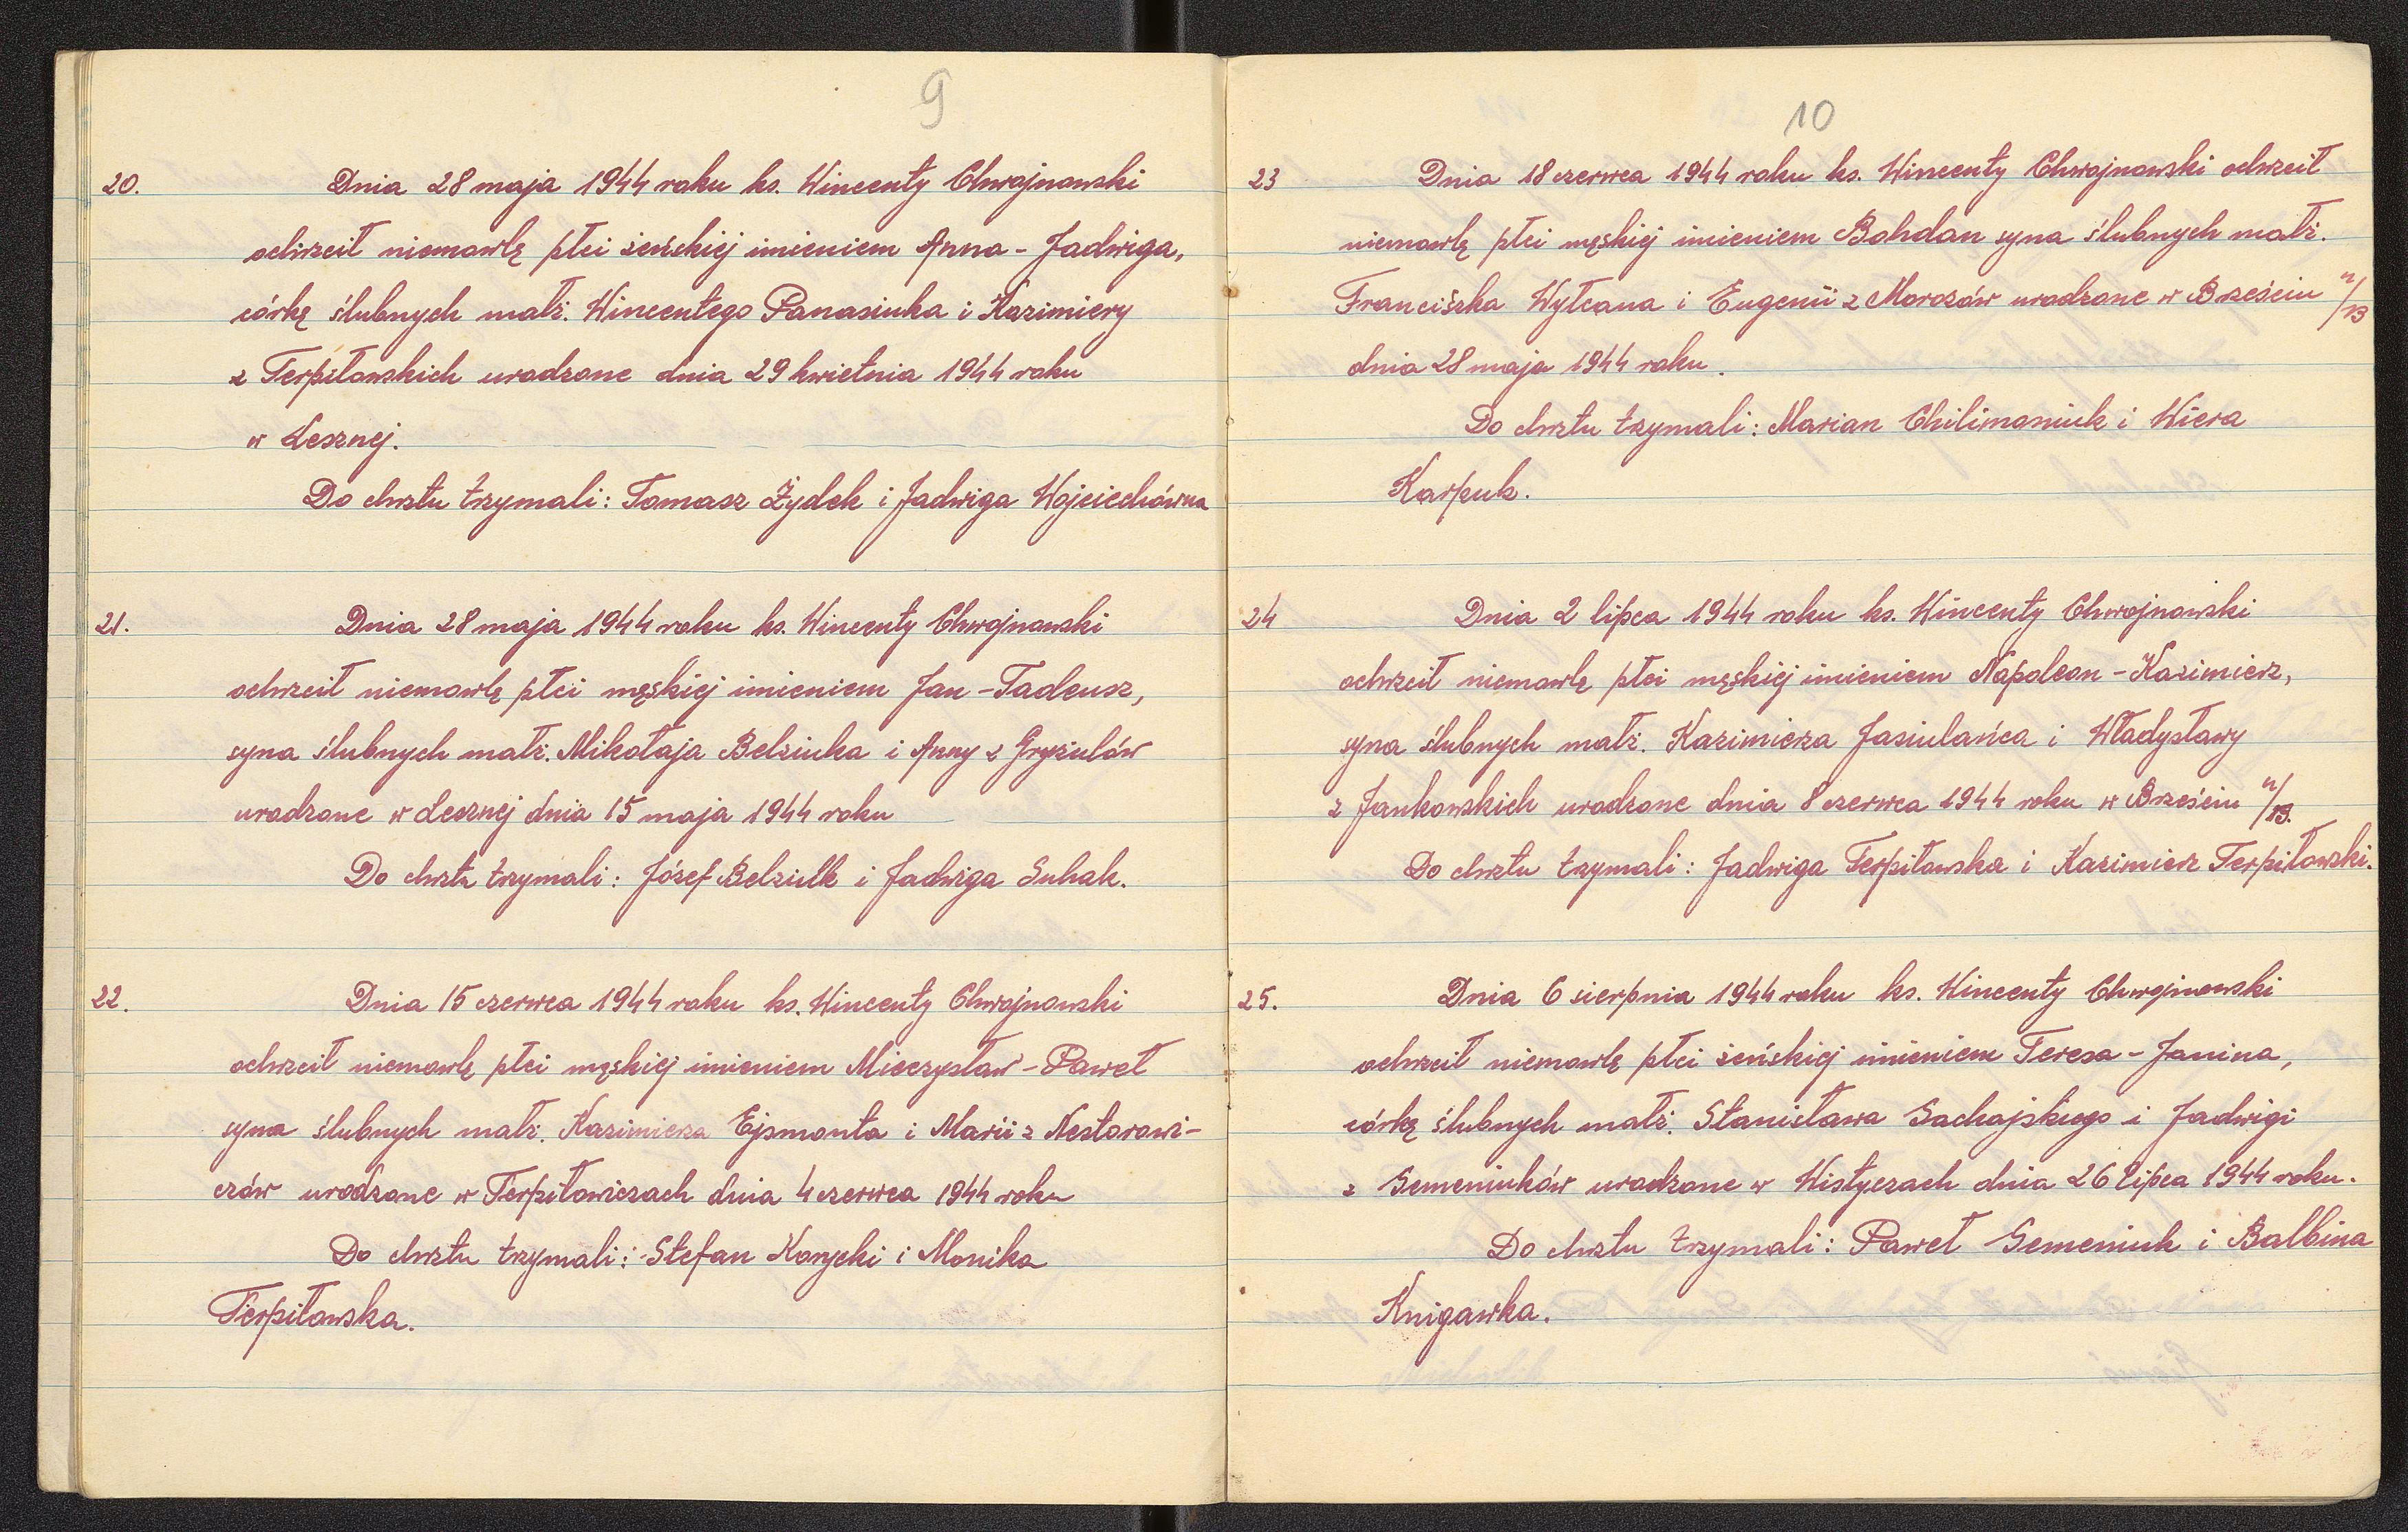 9
20. Dnia 28 maja 1944 roku ks. Wincenty Chwojnowski
ochrzcił niemowlę płci żeńskiej imieniem Anna - Jadwiga,
córkę ślubnych małż. Wincentego Panasiuka i Kazimiery
z Terpiłowskich urodzone dnia 29 kwietnia 1944 roku
w Lesznej.
Do chrztu trzymali: Tomasz Żydek i Jadwiga Wojciechówna
21. Dnia 28 maja 1944 roku ks. Wincenty Chwojnowski
ochrzcił niemowlę płci męskiej imieniem Jan - Tadeusz,
syna ślubnych małż. Mikołaja Belziuka i Anny z Gryżulów
urodzone w Lesznej dnia 15 maja 1944 roku
Do chrztu trzymali: Józef Belziuk i Jadwiga Suhak.
22. Dnia 15 czerwca 1944 roku ks. Wincenty Chwojnowski
ochrzcił niemowlę płci męskiej imieniem Mieczysław - Paweł
syna ślubnych małż. Kazimierza Ejsmonta i Marii z Nestorowi-
czów urodzone w Terpiłowiczach dnia 4 czerwca 1944 roku
Do chrztu trzymali: Stefan Korycki i Monika
Terpiłowska.
10
23 Dnia 18 czerwca 1944 roku ks. Wincenty Chwojnowski ochrzcił
niemowlę płci męskiej imieniem Bohdan syna ślubnych małż.
Franciszka Wyłcana i Eugenii z Morozów urodzone w Brześciu n/B
dnia 28 maja 1944 roku.
Do chrztu trzymali: Marian Chilimoniuk i Wiera
Karpuk.
24 Dnia 2 lipca 1944 roku ks. Wincenty Chwojnowski
ochrzcił niemowlę płci męskiej imieniem Napoleon - Kazimierz,
syna ślubnych małż. Kazimierza Jasiulańca i Władysławy
z Jankowskich urodzone dnia 8 czerwca 1944 roku w Brześciu n/B.
Do chrztu trzymali: Jadwiga Terpiłowska i Kazimierz Terpiłowski.
25. Dnia 6 sierpnia 1944 roku ks. Wincenty Chwojnowski
ochrzcił niemowlę płci żeńskiej imieniem Teresa - Janina,
córkę ślubnych małż. Stanisława Sachajskiego i Jadwigi
z Semeniuków urodzone w Wistyczach dnia 26 lipca 1944 roku.
Do chrztu trzymali: Paweł Semeniuk i Balbina
Knigawka.